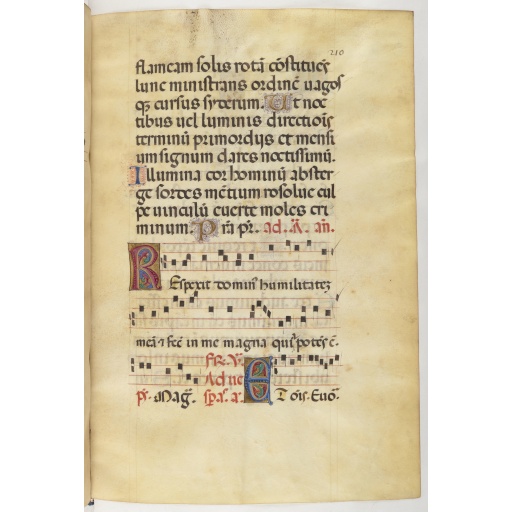 210
flameam solis rotā cōstitueꝫ
lune ministrans ordinē uagos
qꝫ cursus syderum. Ut noc
tibus uel luminis directiōis
terminū primordijs et mensi
um signum dares noctissimū.
Illumina cor hominū abster
ge sordes mētium resolue cul
pe uinculū euerte moles cri
minum. Pr̄a pr̄. ad. M̄. añ.
Respexit dominꝰ humilitateꝫ
meā ⁊ fec̄ in me magna qui potēs ē.
FR. V.
Adue
pš. Mag̃. Sp̄as. a. E Tōis. Euõ.